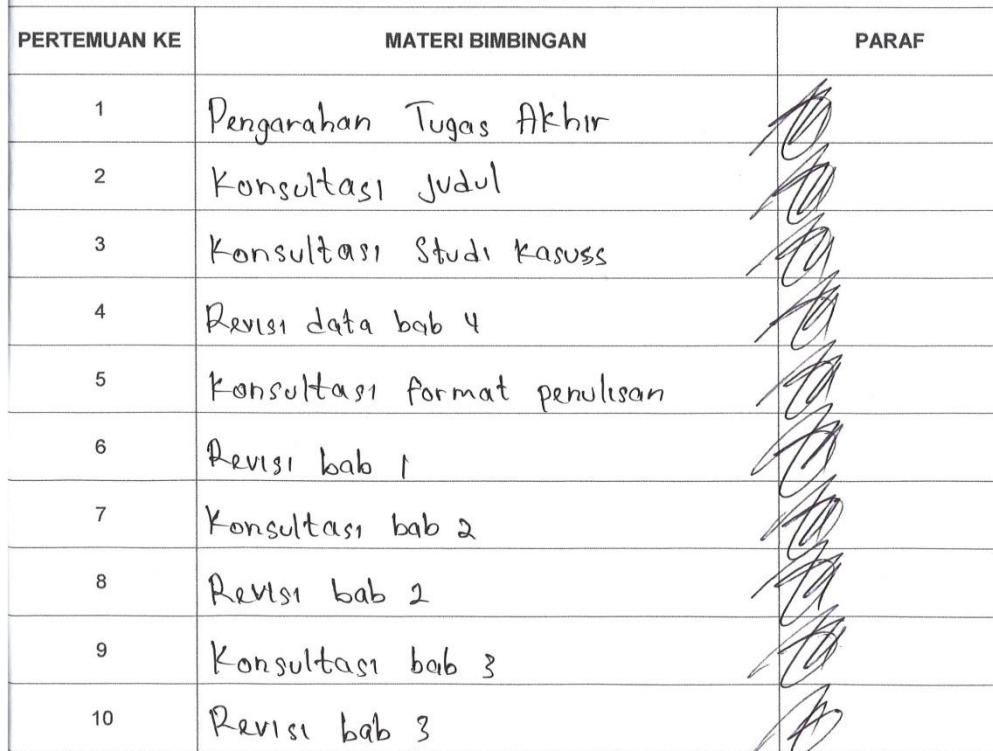 PERTEMUAN KE MATERI BIMBINGAN PARAF
1 Pengarahan Tugas Akhir
2 Konsultasi Judul
3 Konsultasi Studi Kasuss
4 Revisi data bab 4
5 Konsultasi format penulisan
6 Revisi bab 1
7 Konsultasi bab 2
8 Revisi bab 2
9 Konsultasi bab 3
10 Revisi bab 3